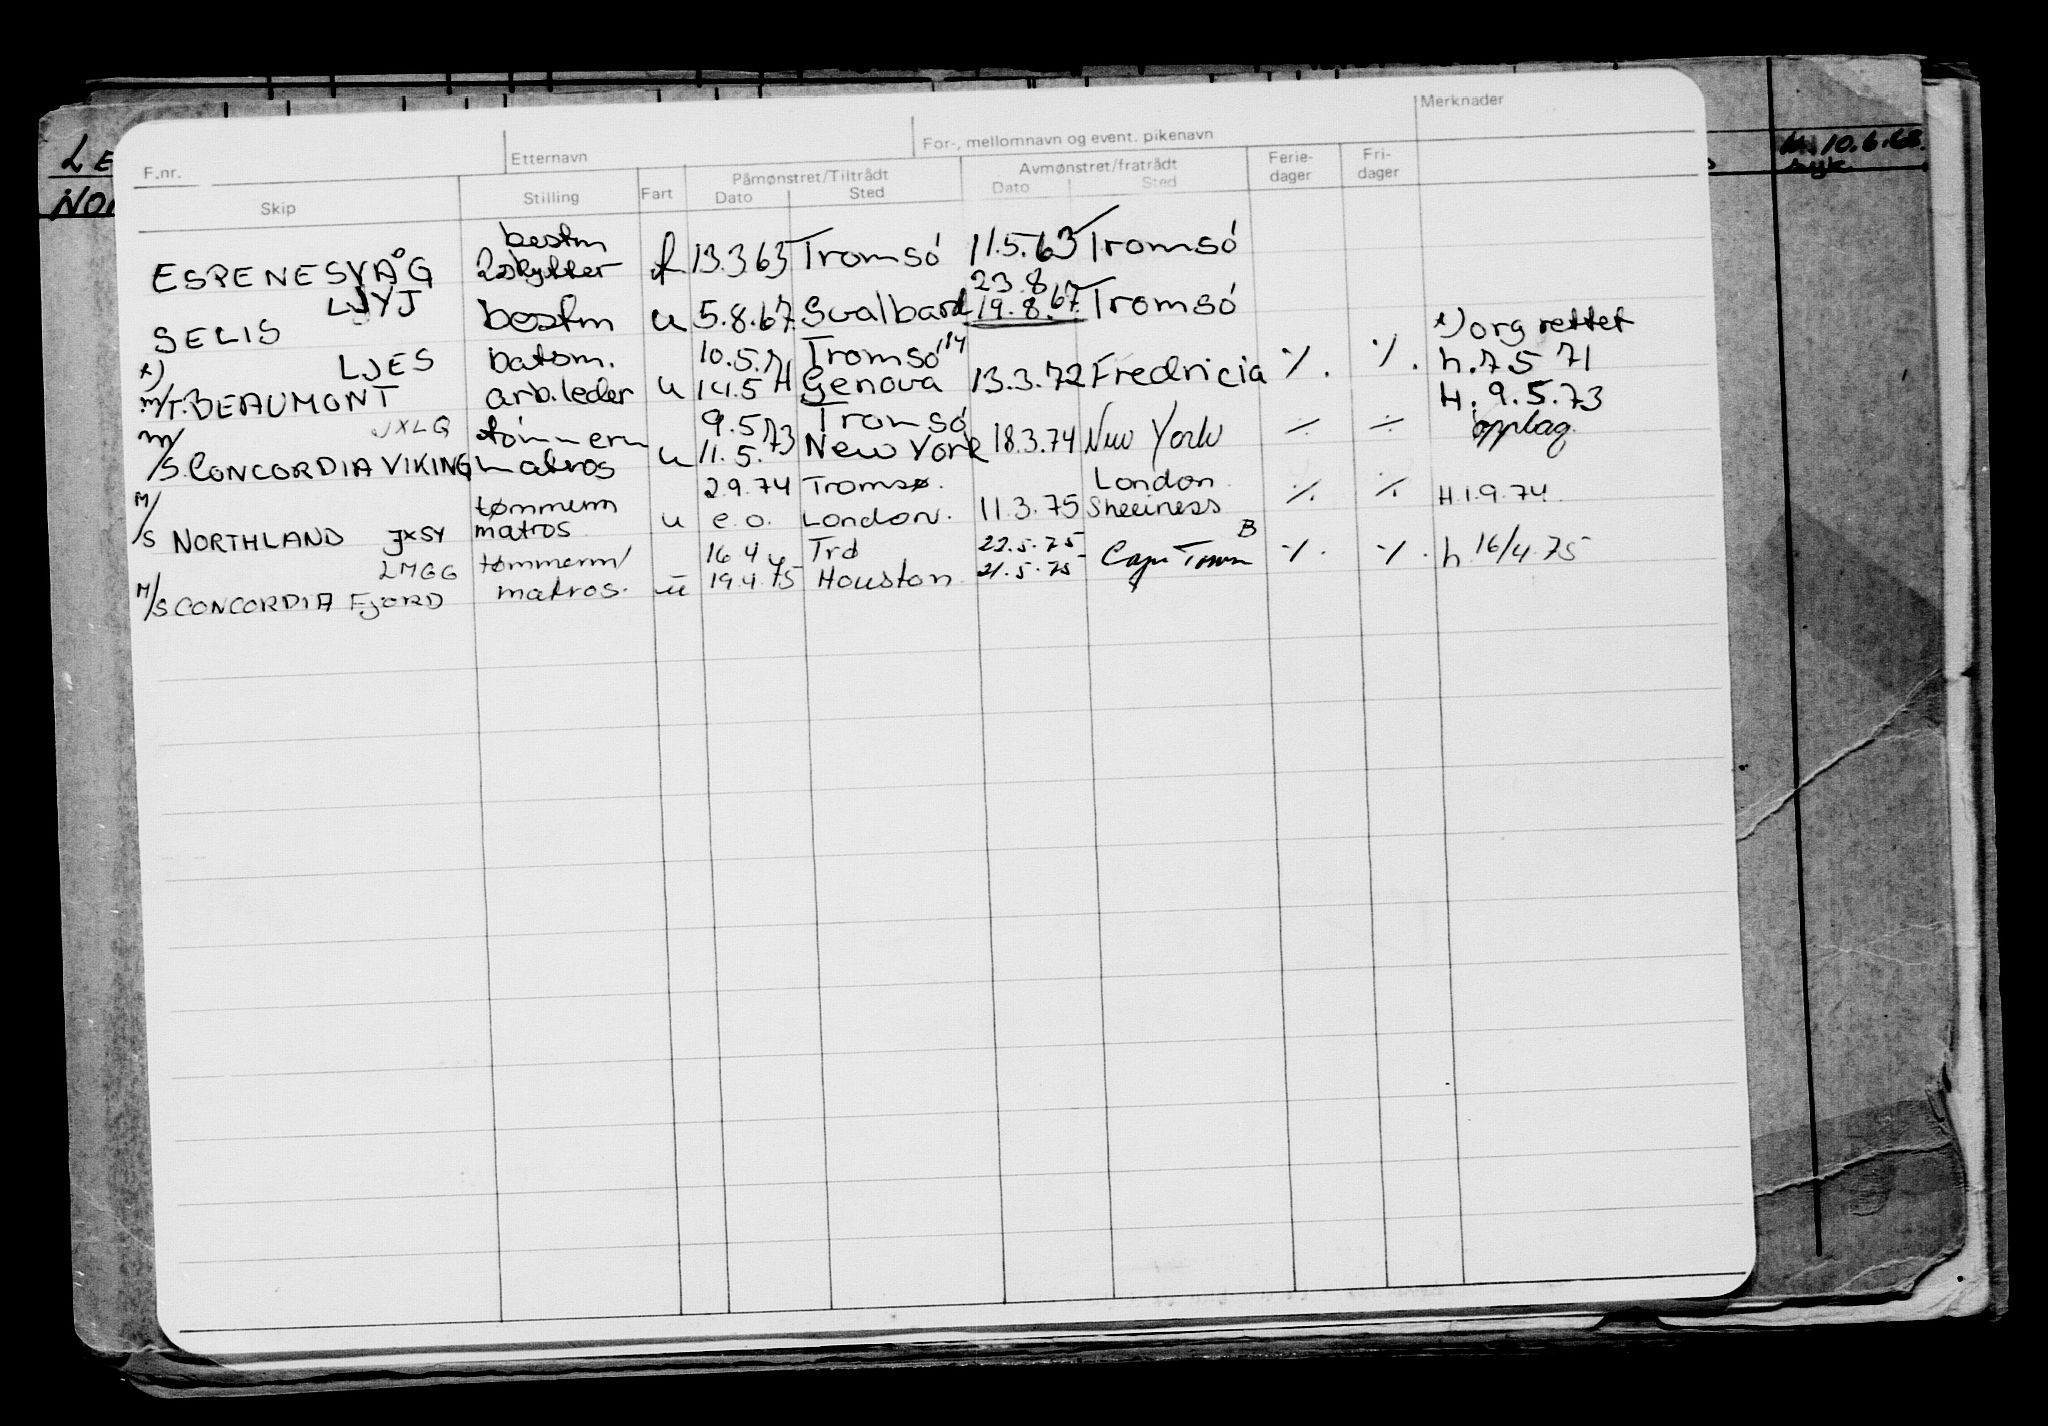 Merknader
For-, mellomnavn og event. pikenavn
Etternavn
F.nr.
M. 10.6.68.
L E
NOR
Skip Stilling Fart Påmønstret/Tiltrådt Dato Sted Avmønstret/fratrådt Dato Sted Ferie-dager Fri-dager
bestm
ESPENESVÅG 2skytter f 13.3.63 Tromsó 11.5.63 Tromsó
LJYJ 23.8
SELIS bestm u 5.8.67 Svalbard 19.8.67 Tromsó
x) org rettet
x) LJES batsm. 10.5.71 Tromsó h. 7 5 71
m/T. BEAUMONT arb.leder u 14.5 71 Genova 13.3.72 Fredricia ·/. ·/.
JXLQ tómmerm 9.5 Tromsó H. 9.5.73
m/S. CONCORDIA VIKING matros u 11.5.73 New York 18.3.74 New York ÷ ÷ opplag.
tømmerm 2.9.74 Tromsø. London
M/S NORTHLAND JXSY matros u e.o. London. 11.3.75 Sheerness ·/. ·/. H.1.9.74
LMGG tømmerm/ 16.4 Trd 22.5.75 B
M/S CONCORDIA FJORD matros. u 19.4.75 Houston 21.5.75 Cape Town ·/. ·/. h 16/4.75